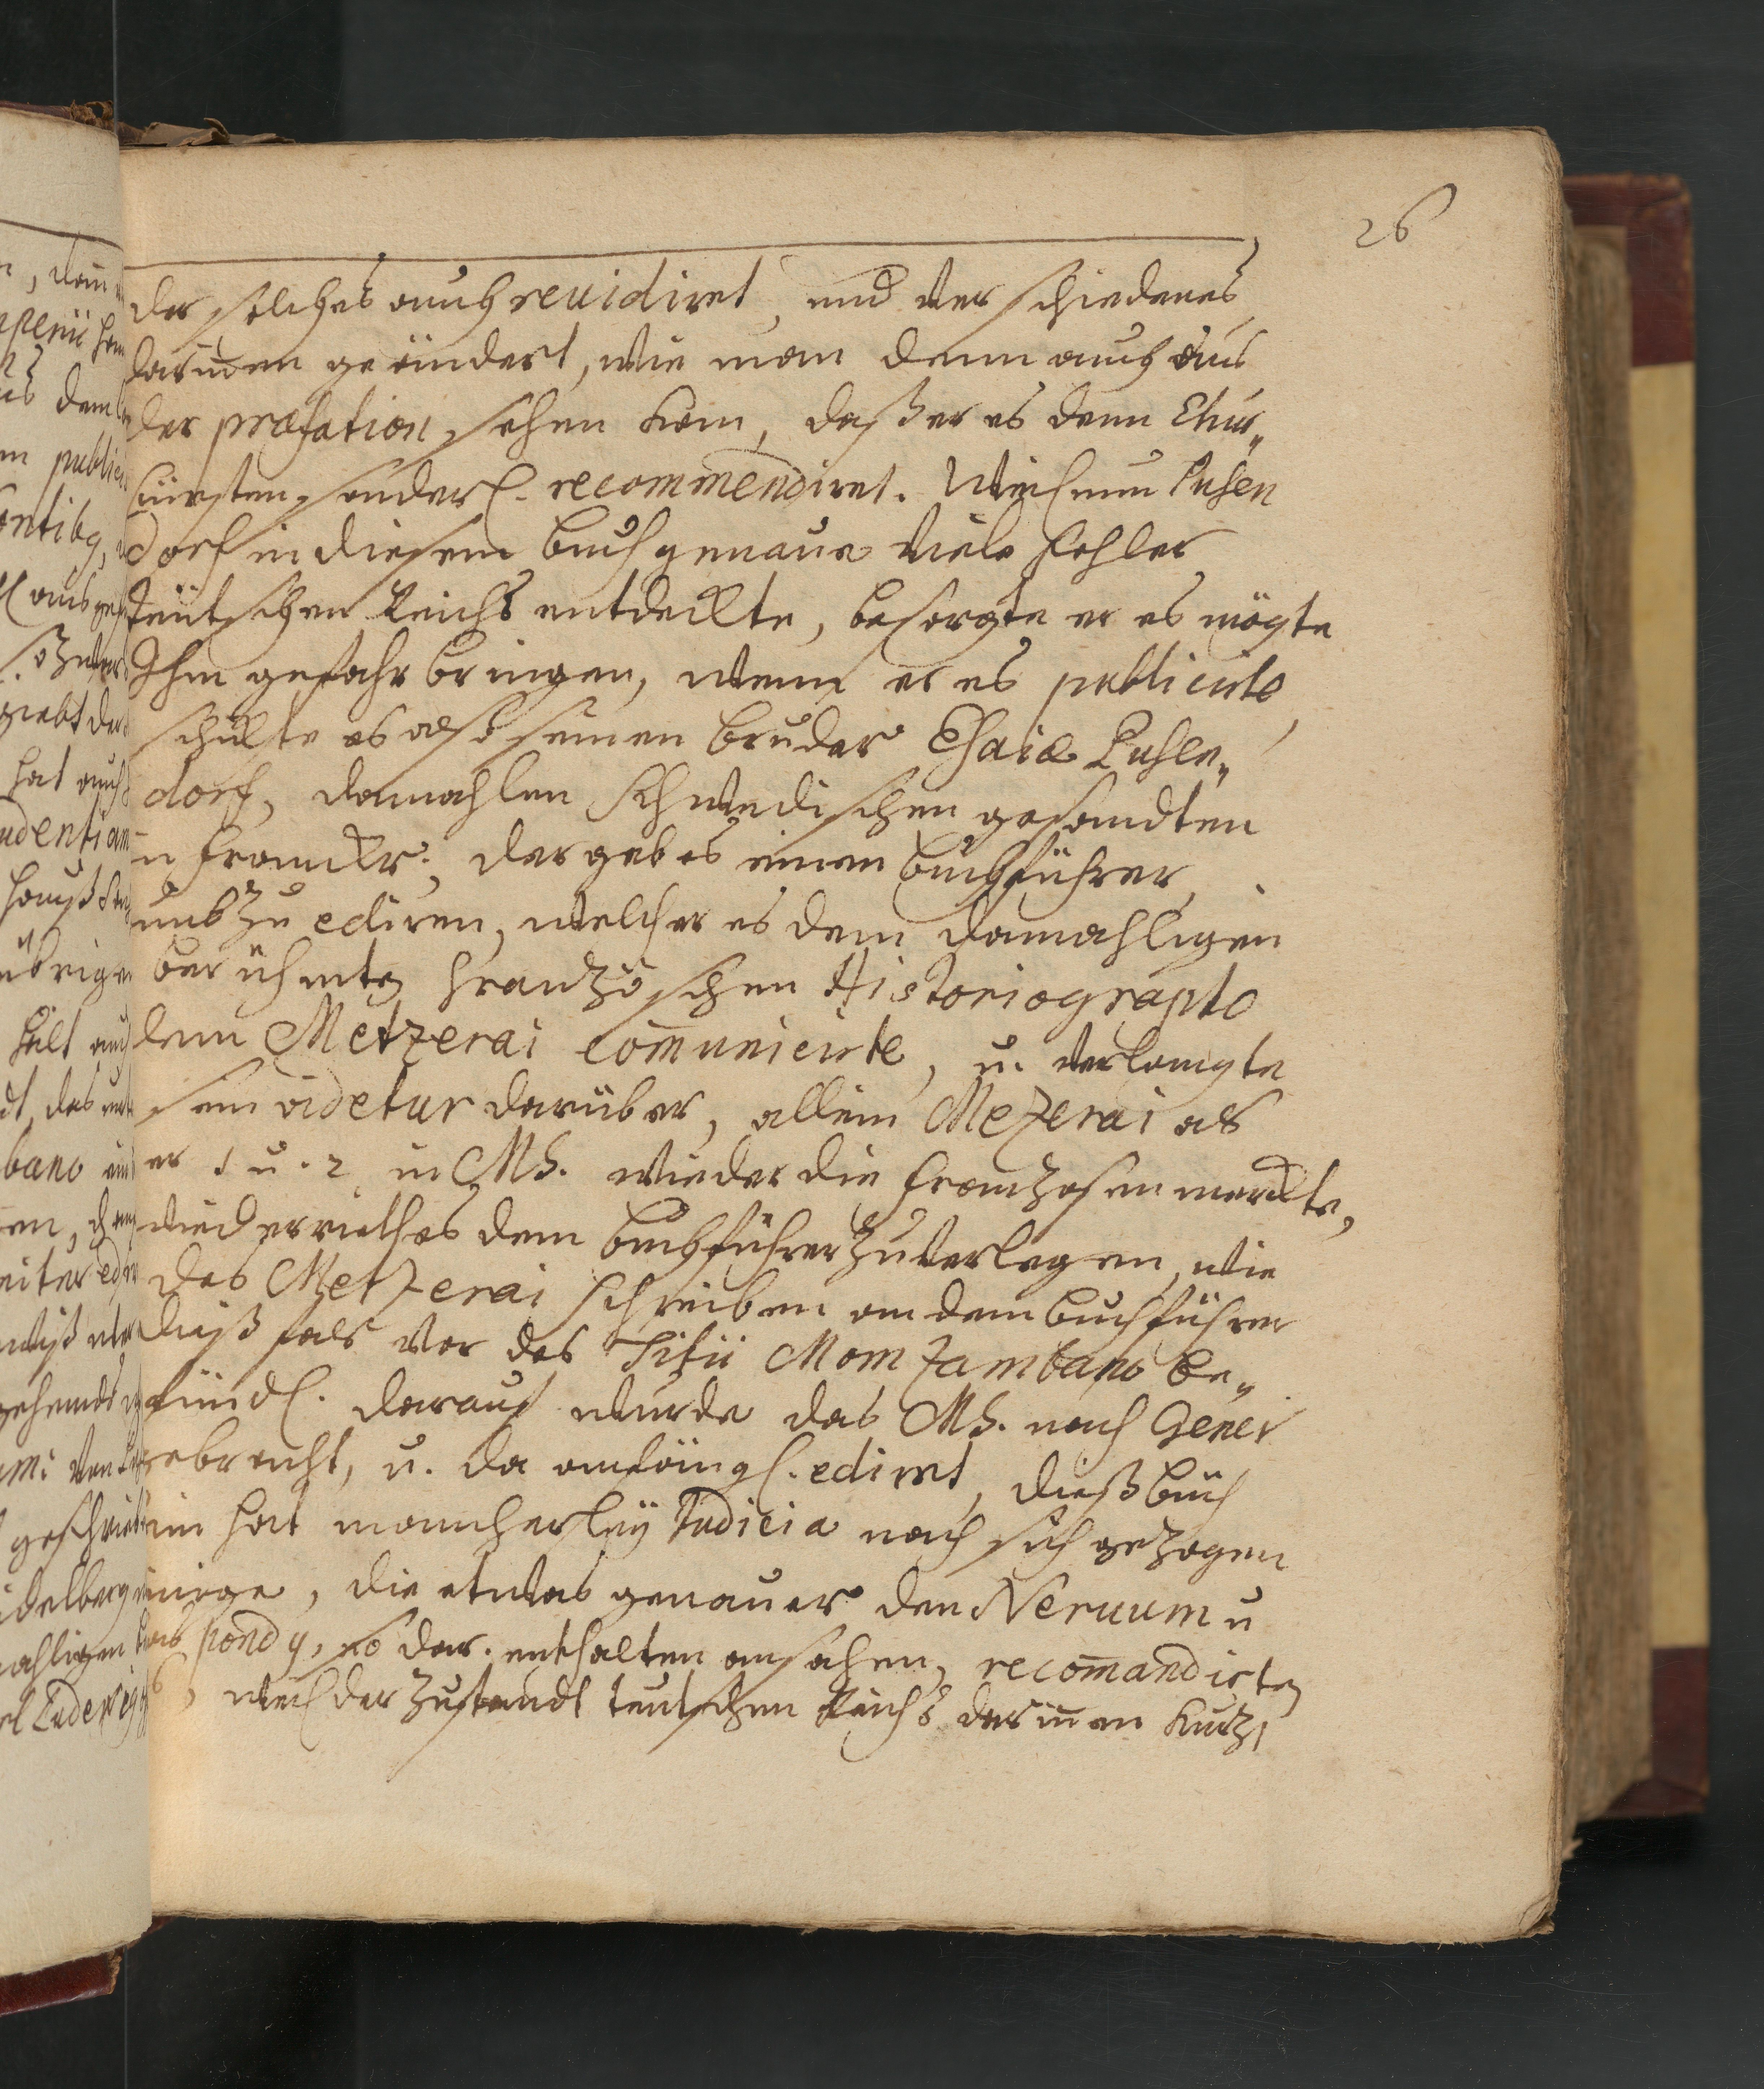 26
der solches auch revidiret, und verschiedenes
darinnen geändert, wie man denn auch aus
der præfation sehen kan, daß er es dem Chur„
fürsten sonderl. recommendiret. Weil nun Pufen
dorf in diesem buch genaue viele fehler
teutschen Reichs entdeckte, besorgte er es mögte
Ihm gefahr bringen, wenn er es publicirte,
schickte es also seinen bruder Esaiæ Pufen„
dorf, damahlen Schwedischen gesandten
in Franckr. der gab es einen buchführer,
umb zu ediren, welcher es dem damahligen
berühmten Frantzöschen Historiographo
dem Metzerai com̄unicirte, u. verlangte
sein videtur darüber, allein Mezerai als
er 1 u. 2 in MS. wieder die Frantzosen merckte,
wiederrieth es dem buchführer zu verlegen, wie
des Metzerai schreiben an dem buchführer
dießfals vor des Titii Momzambano be„
findl. darauf wurde das MS. nach Genev
gebracht, u. da anfängl. ediret, dieß buch
ein hat mancherley Judicia nach sich gezogen
einige, die etwas genauer den Nervum u
pondg, so dar. enthalten ansahen, recom̄andirten
, weil der Zustandt teutschen Reichs darin̄en kurtz